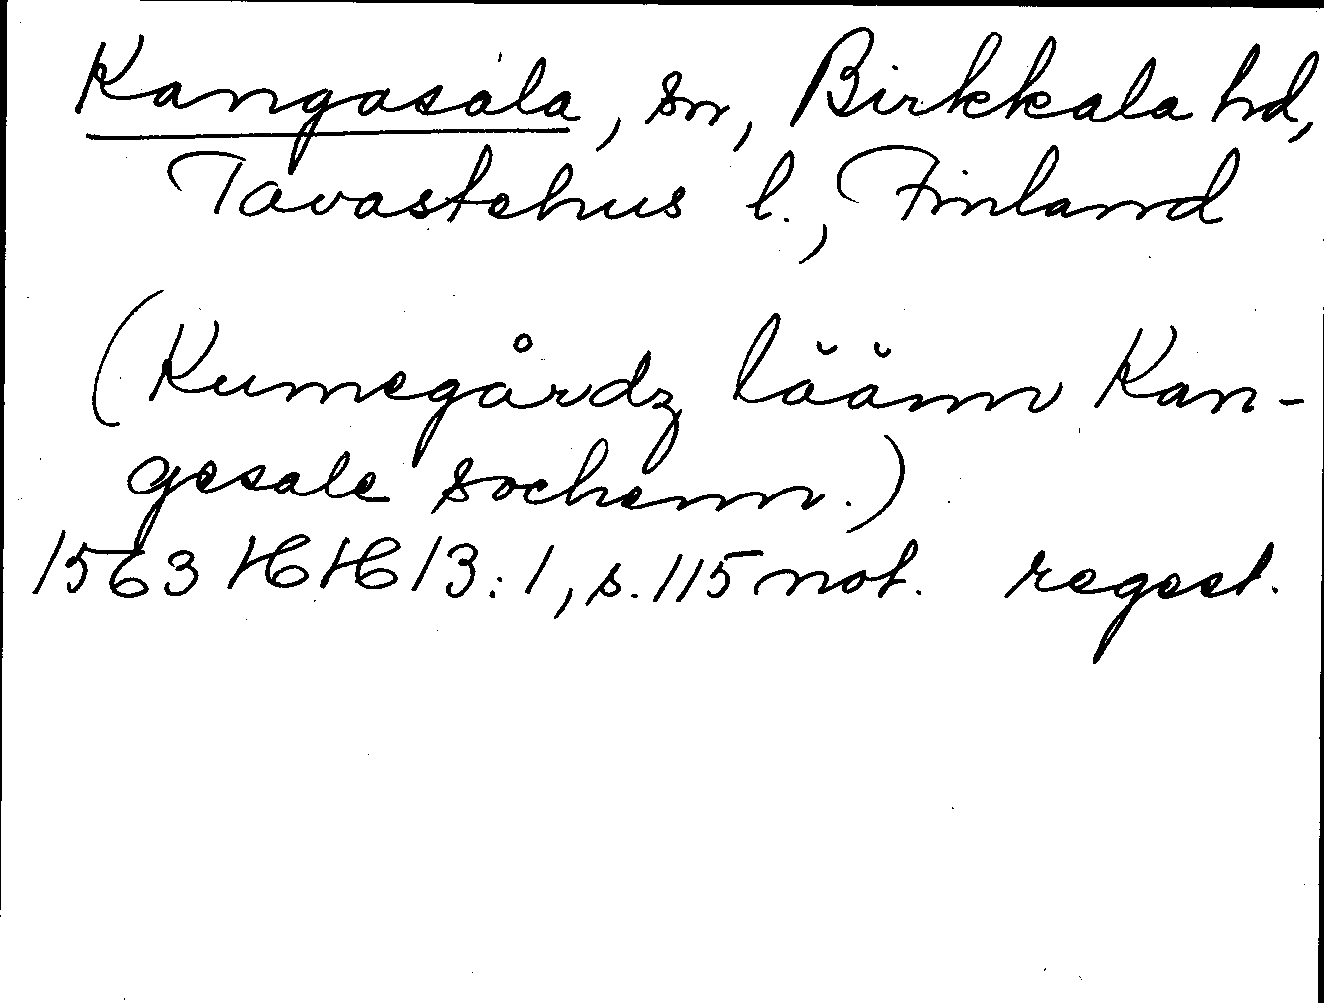 Kangasala, sn, Birkkala hd,
Tavastehus l., Finland
(Kumegårdz läänn Kan-
gesale sochenn.)
1563 HH 13:1, s. 115 not. regest.